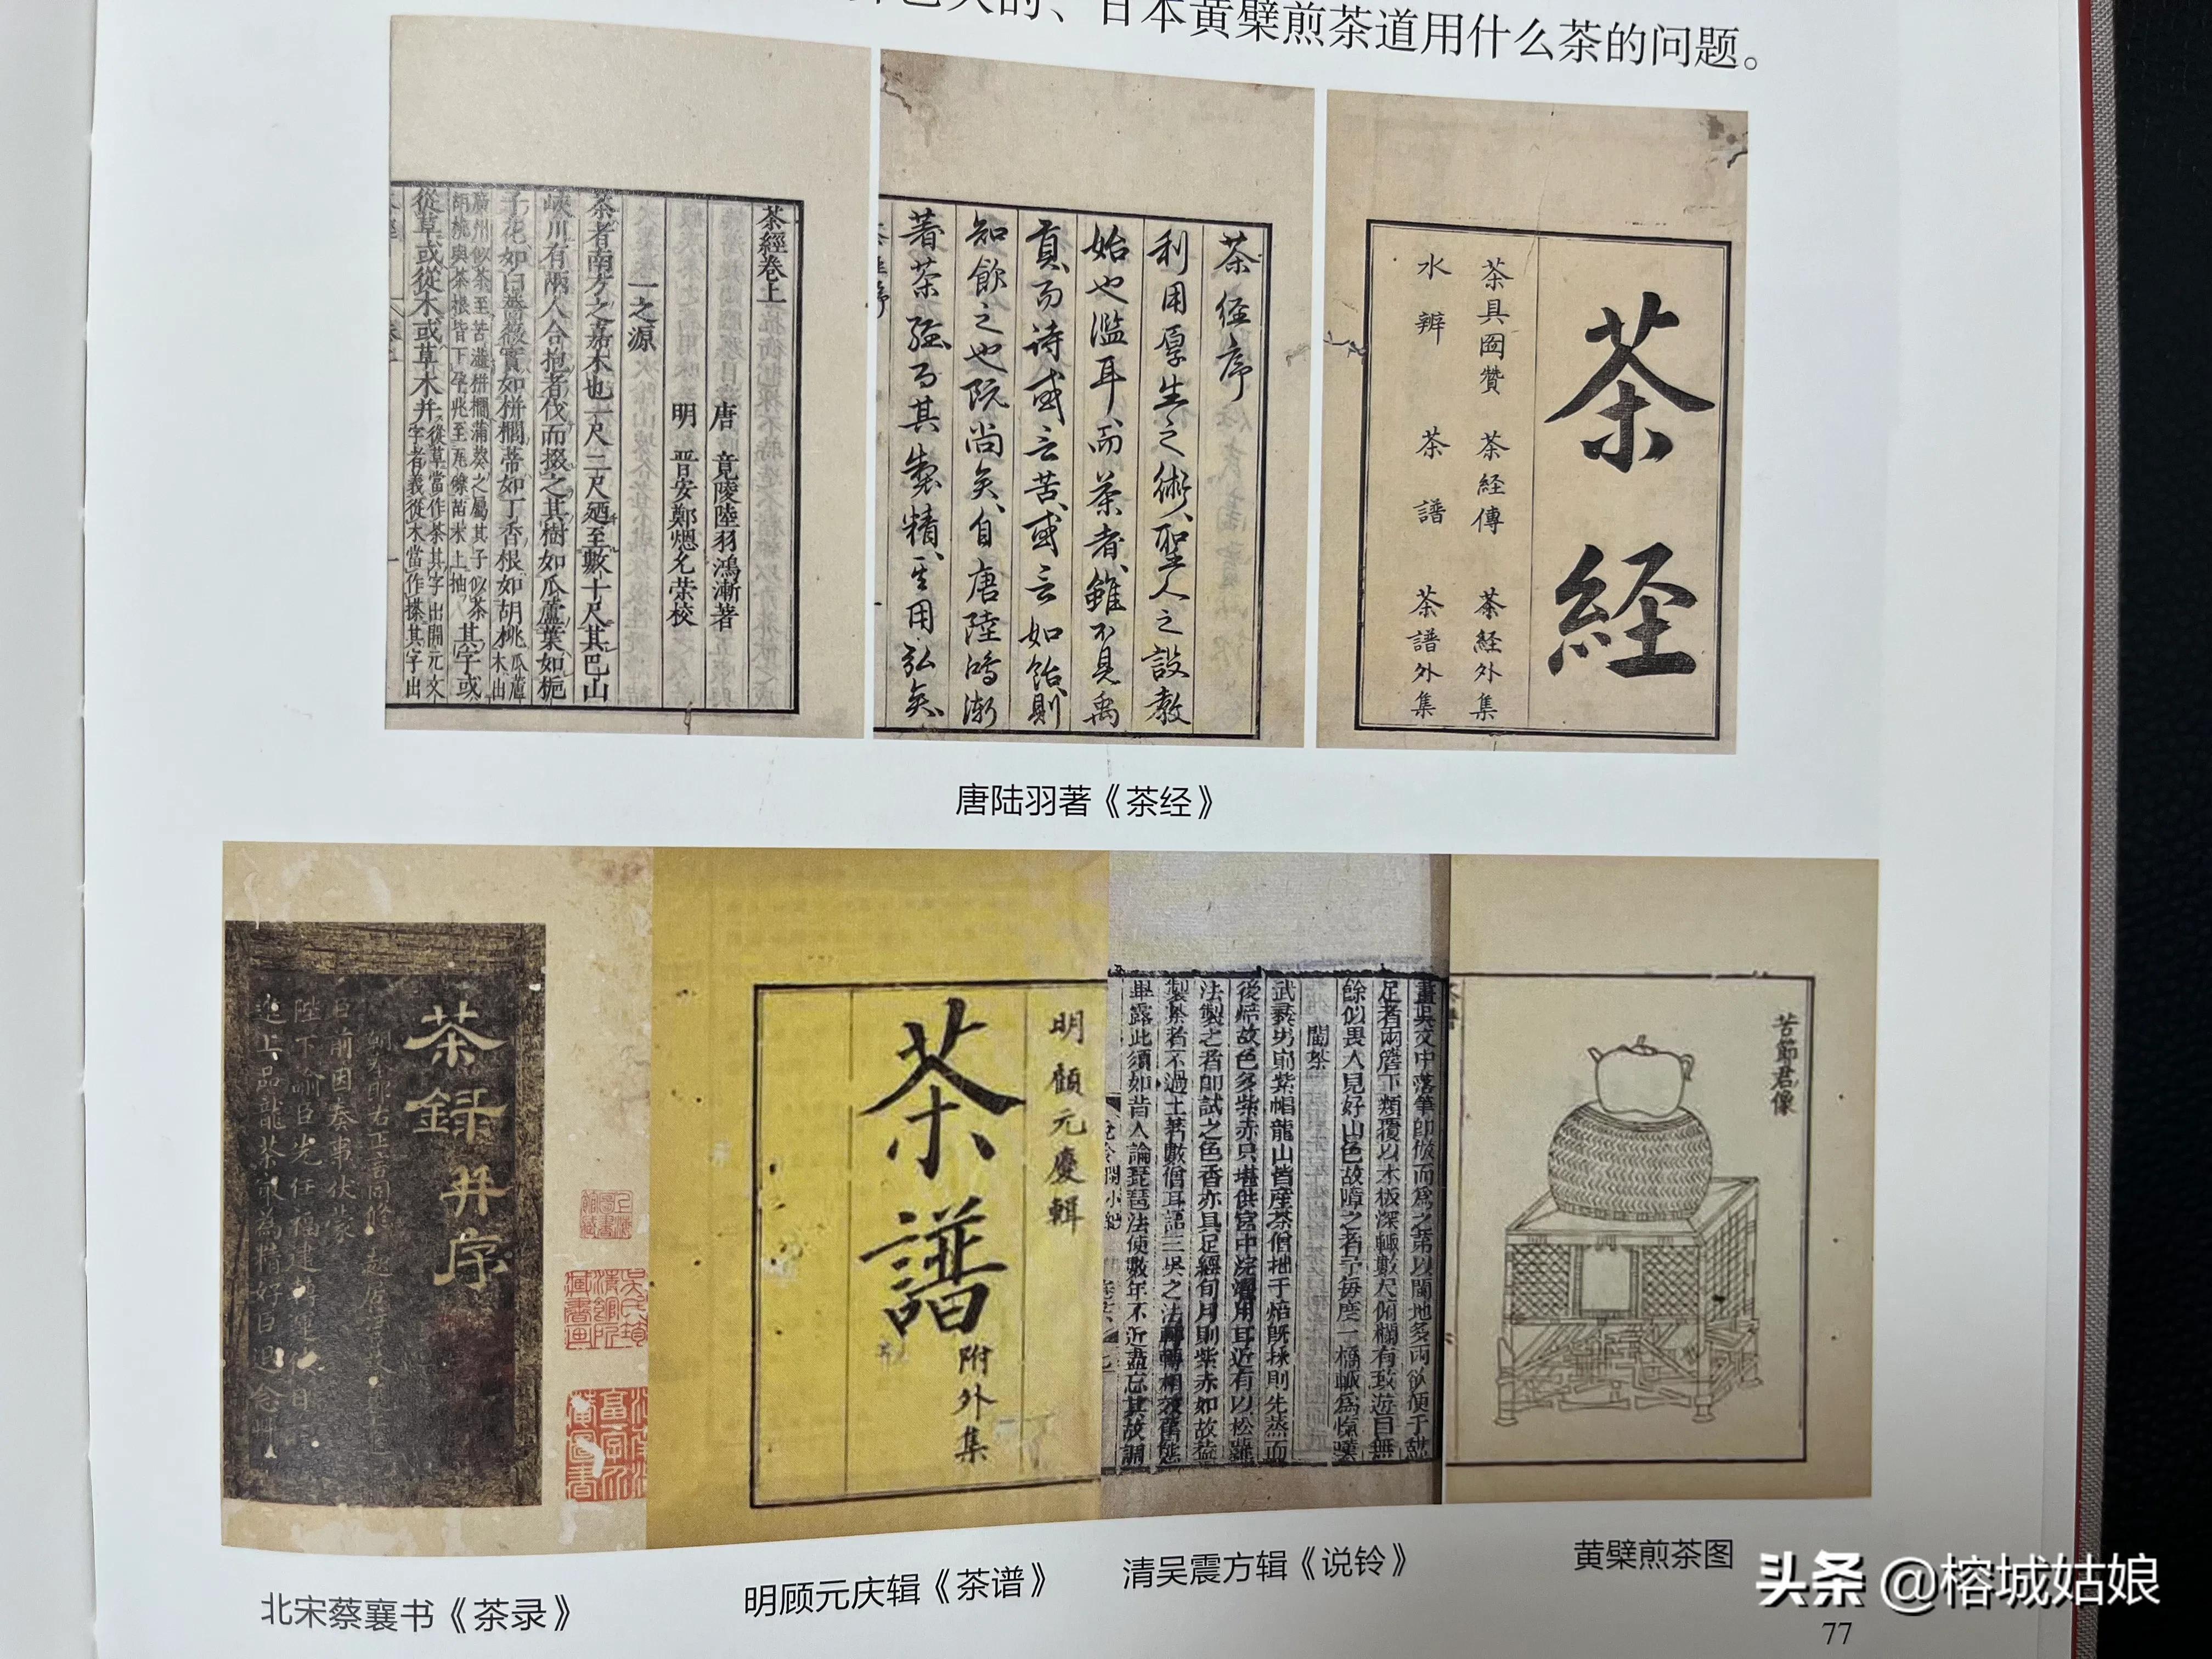 的、日本黄檗煎茶道用什么茶的问题。
茶經卷上
唐　竟陵陸羽鴻漸著
明　晋安鄭熜允榮校
一之源
茶者南方之嘉木也一尺二尺廼至數十尺其巴山
峽川有兩人合抱者伐而掇之其樹如瓜蘆葉如梔
子花如白薔薇實如栟櫚蒂如丁香根如胡桃瓜蘆木出
廣州似茶至苦澁栟櫚蒲葵之屬其子似茶
胡桃與茶根皆下孕兆至瓦礫苗木上抽
其字或
從草或從木或草木并從草當作茶其字出開元文
字者義從木當作㮈其字出
茶经序
利用厚生之術聖人之設教
始也濫耳而茶者雖不見禹
貢而诗或言苦或言如飴則
知飲之也阮尚矣自唐陸鴻漸
著茶經而其製精其用弘矣
茶経
茶具图贊　茶経傳　茶経外集
水辨　茶譜　茶譜外集
唐陆羽著《茶经》
茶録并序
朝奉郎右正言同修起居注
臣前因奏事伏蒙
陛下諭臣先任福建轉運使日
進上品龍茶最為精好臣退念艸
明顧元慶輯
茶譜
附外集
畫與文中落筆即倣而為之第以閩地多雨欲便于
足者兩簷下類覆以木板深輒數尺俯欄有致遊目無
餘似畏人見好山色故障之者予每度一橋輒為悵嘆
閩茶
武彝屴崱紫帽龍山皆産茶僧拙于焙既採則先蒸而
後焙故色多紫赤只堪供宮中浣濯用耳近有以松蘿
法製之者即試之色香亦具足經旬月則紫赤如故葢
製茶者不過土著數僧耳語三吳之法轉轉相效舊態
畢露此須如昔人論琵琶法使數年不近盡忘其故調
苦節君像
北宋蔡襄书《茶录》
明顾元庆辑《茶谱》
清吴震方辑《说铃》
黄檗煎茶图
头条 @榕城姑娘
77